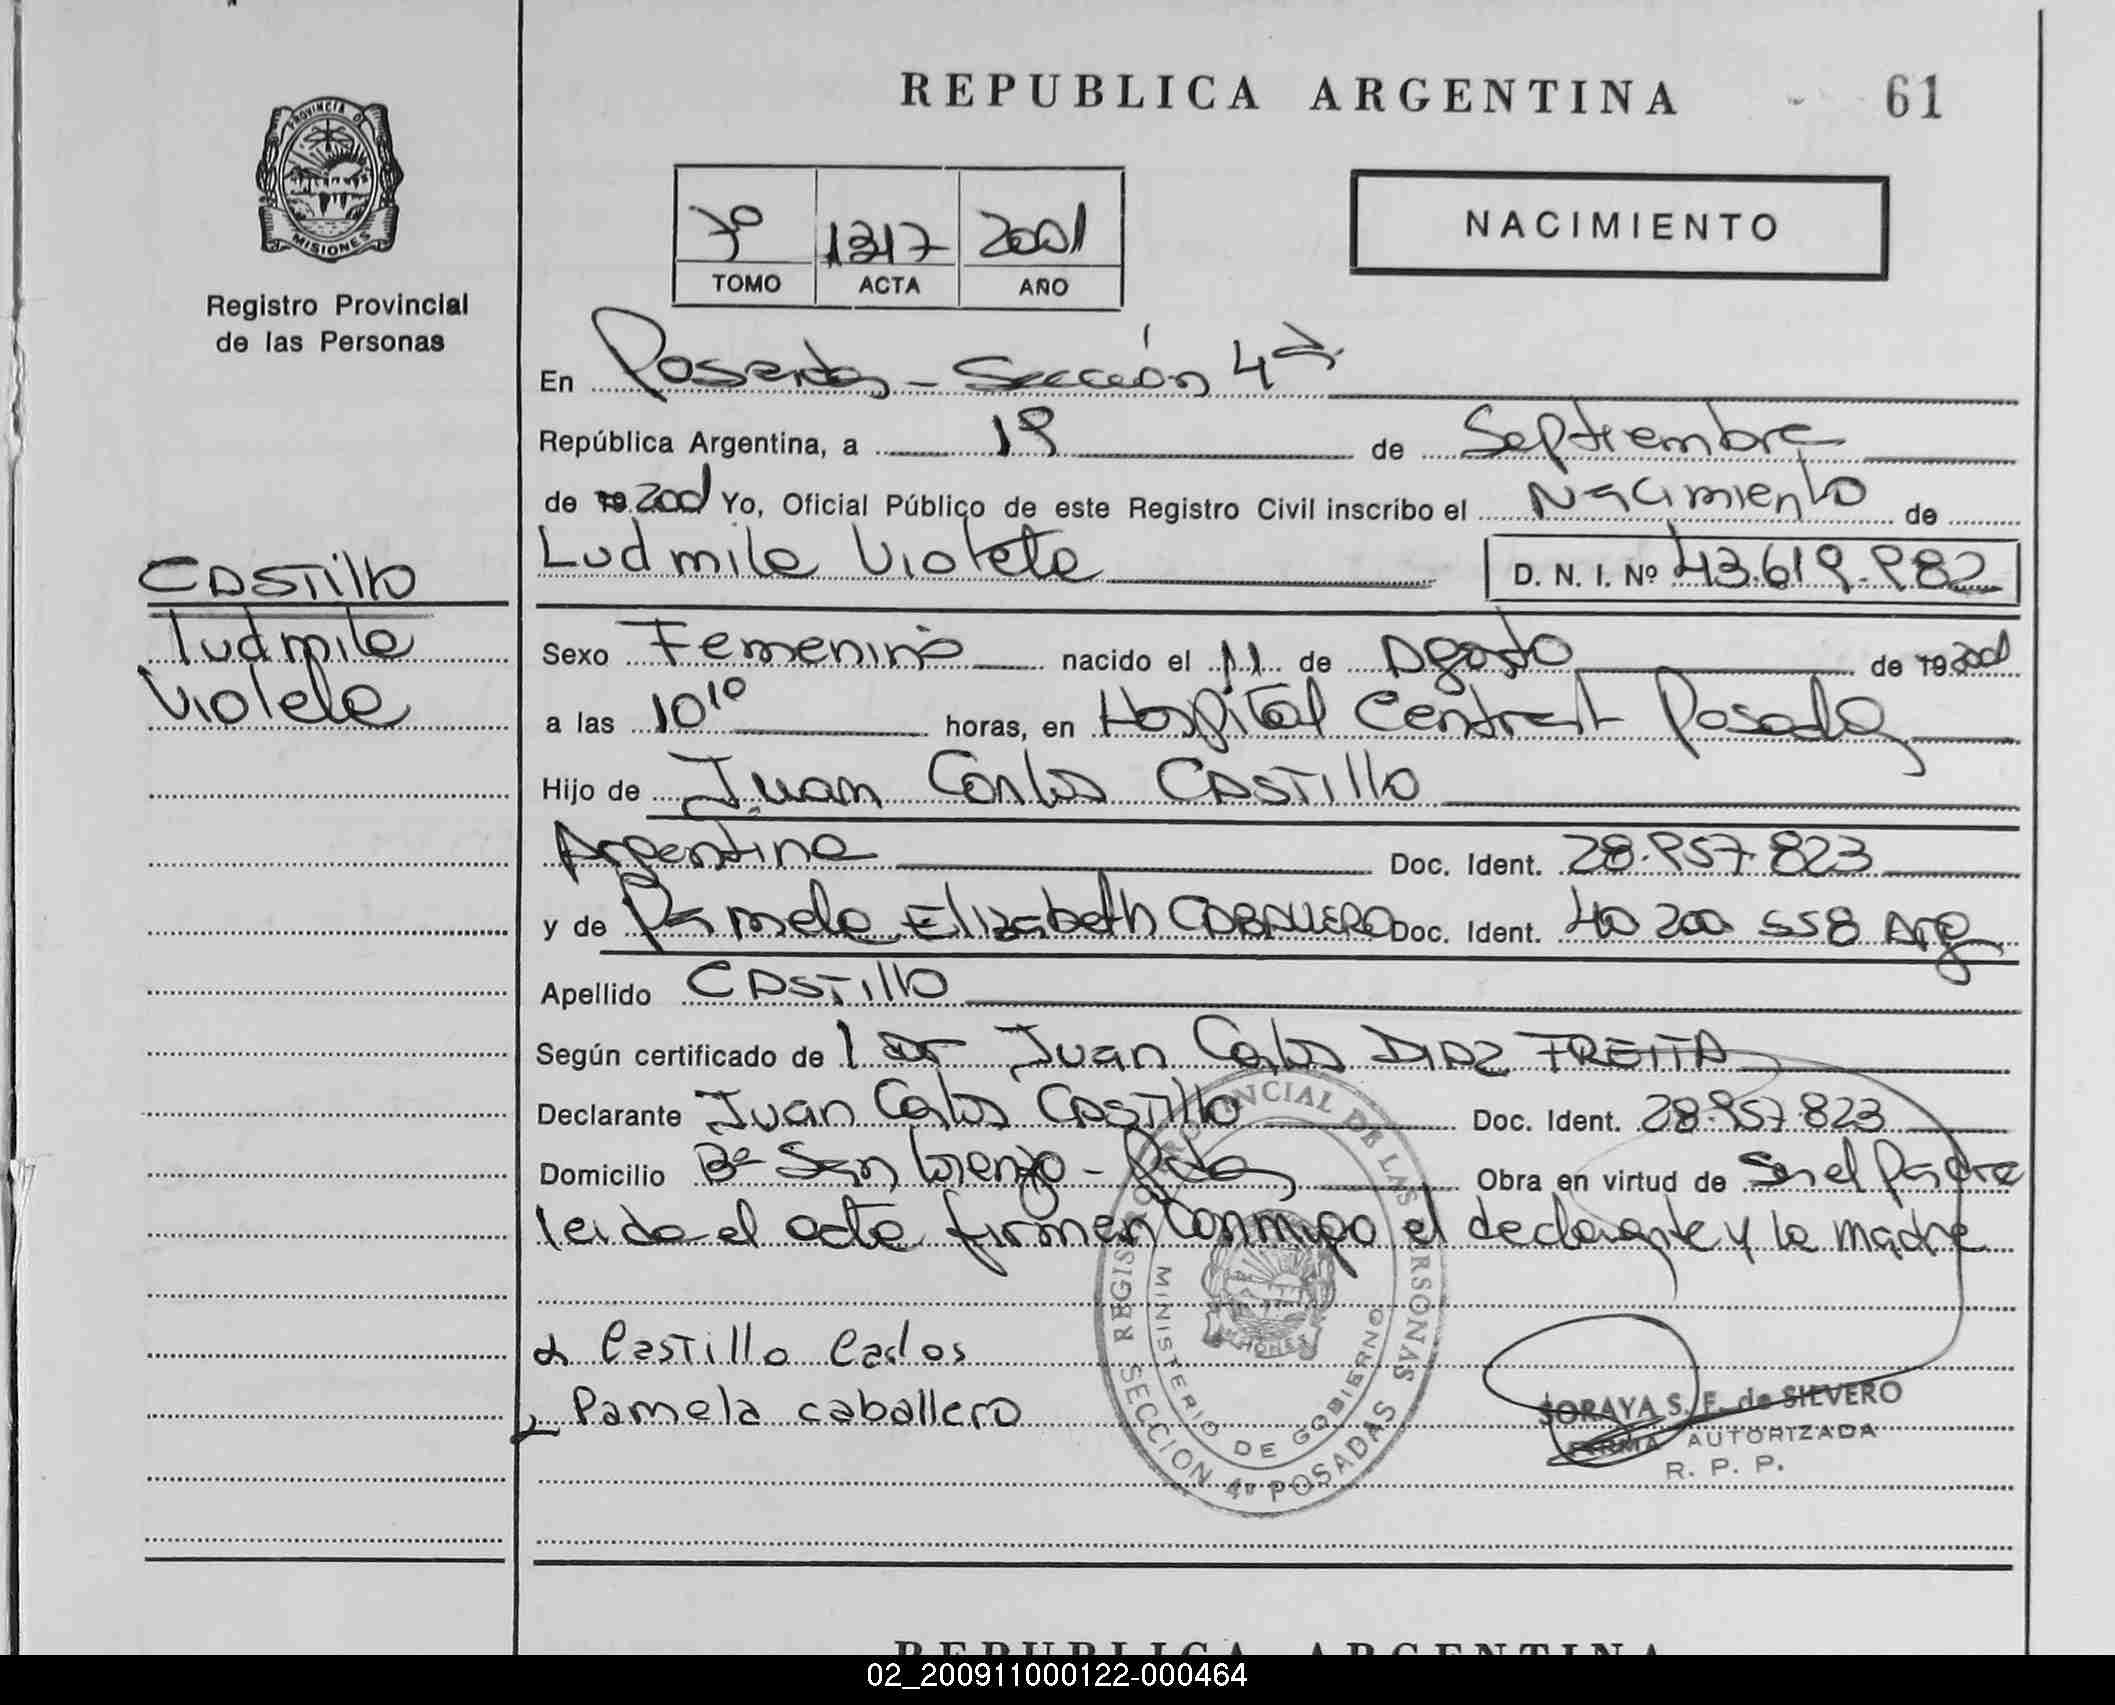 REPUBLICA ARGENTINA 61
PROVINCIA DE
MISIONES
Registro Provincial
de las Personas
7º 1317 2001
TOMO ACTA AÑO
NACIMIENTO
En Posadas - Sección 4ª
República Argentina, a 19 de Septiembre
de 19 2001 Yo, Oficial Público de este Registro Civil inscribo el Nacimiento de
Ludmila Violeta D. N. I. Nº 43.619.982
CASTillo
Ludmila
Violeta
Sexo Femenino nacido el 11 de Agosto de 19 2001
a las 10 10 horas, en Hospital Central Posadas
Hijo de Juan Carlos CASTillo
Argentina Doc. Ident. 28.957.823
y de Pamela Elizabeth CABALLERO Doc. Ident. 40 200 558 Arg
Apellido CASTillo
Según certificado de Juan Carlos DIAZ FREITA
Declarante Juan Carlos CASTillo Doc. Ident. 28.957.823
Domicilio Bº San Lorenzo - Pdas Obra en virtud de Ser el Padre
leida el acta firman conmigo el declarante y la madre
Castillo Carlos
Pamela caballero
REGISTRO PROVINCIAL DE LAS PERSONAS
MINISTERIO DE GOBIERNO
MISIONES
SECCION 4ª POSADAS
SORAYA S. F. de SILVERO
FIRMA AUTORIZADA
R. P. P.
REPUBLICA ARGENTINA
02_200911000122-000464